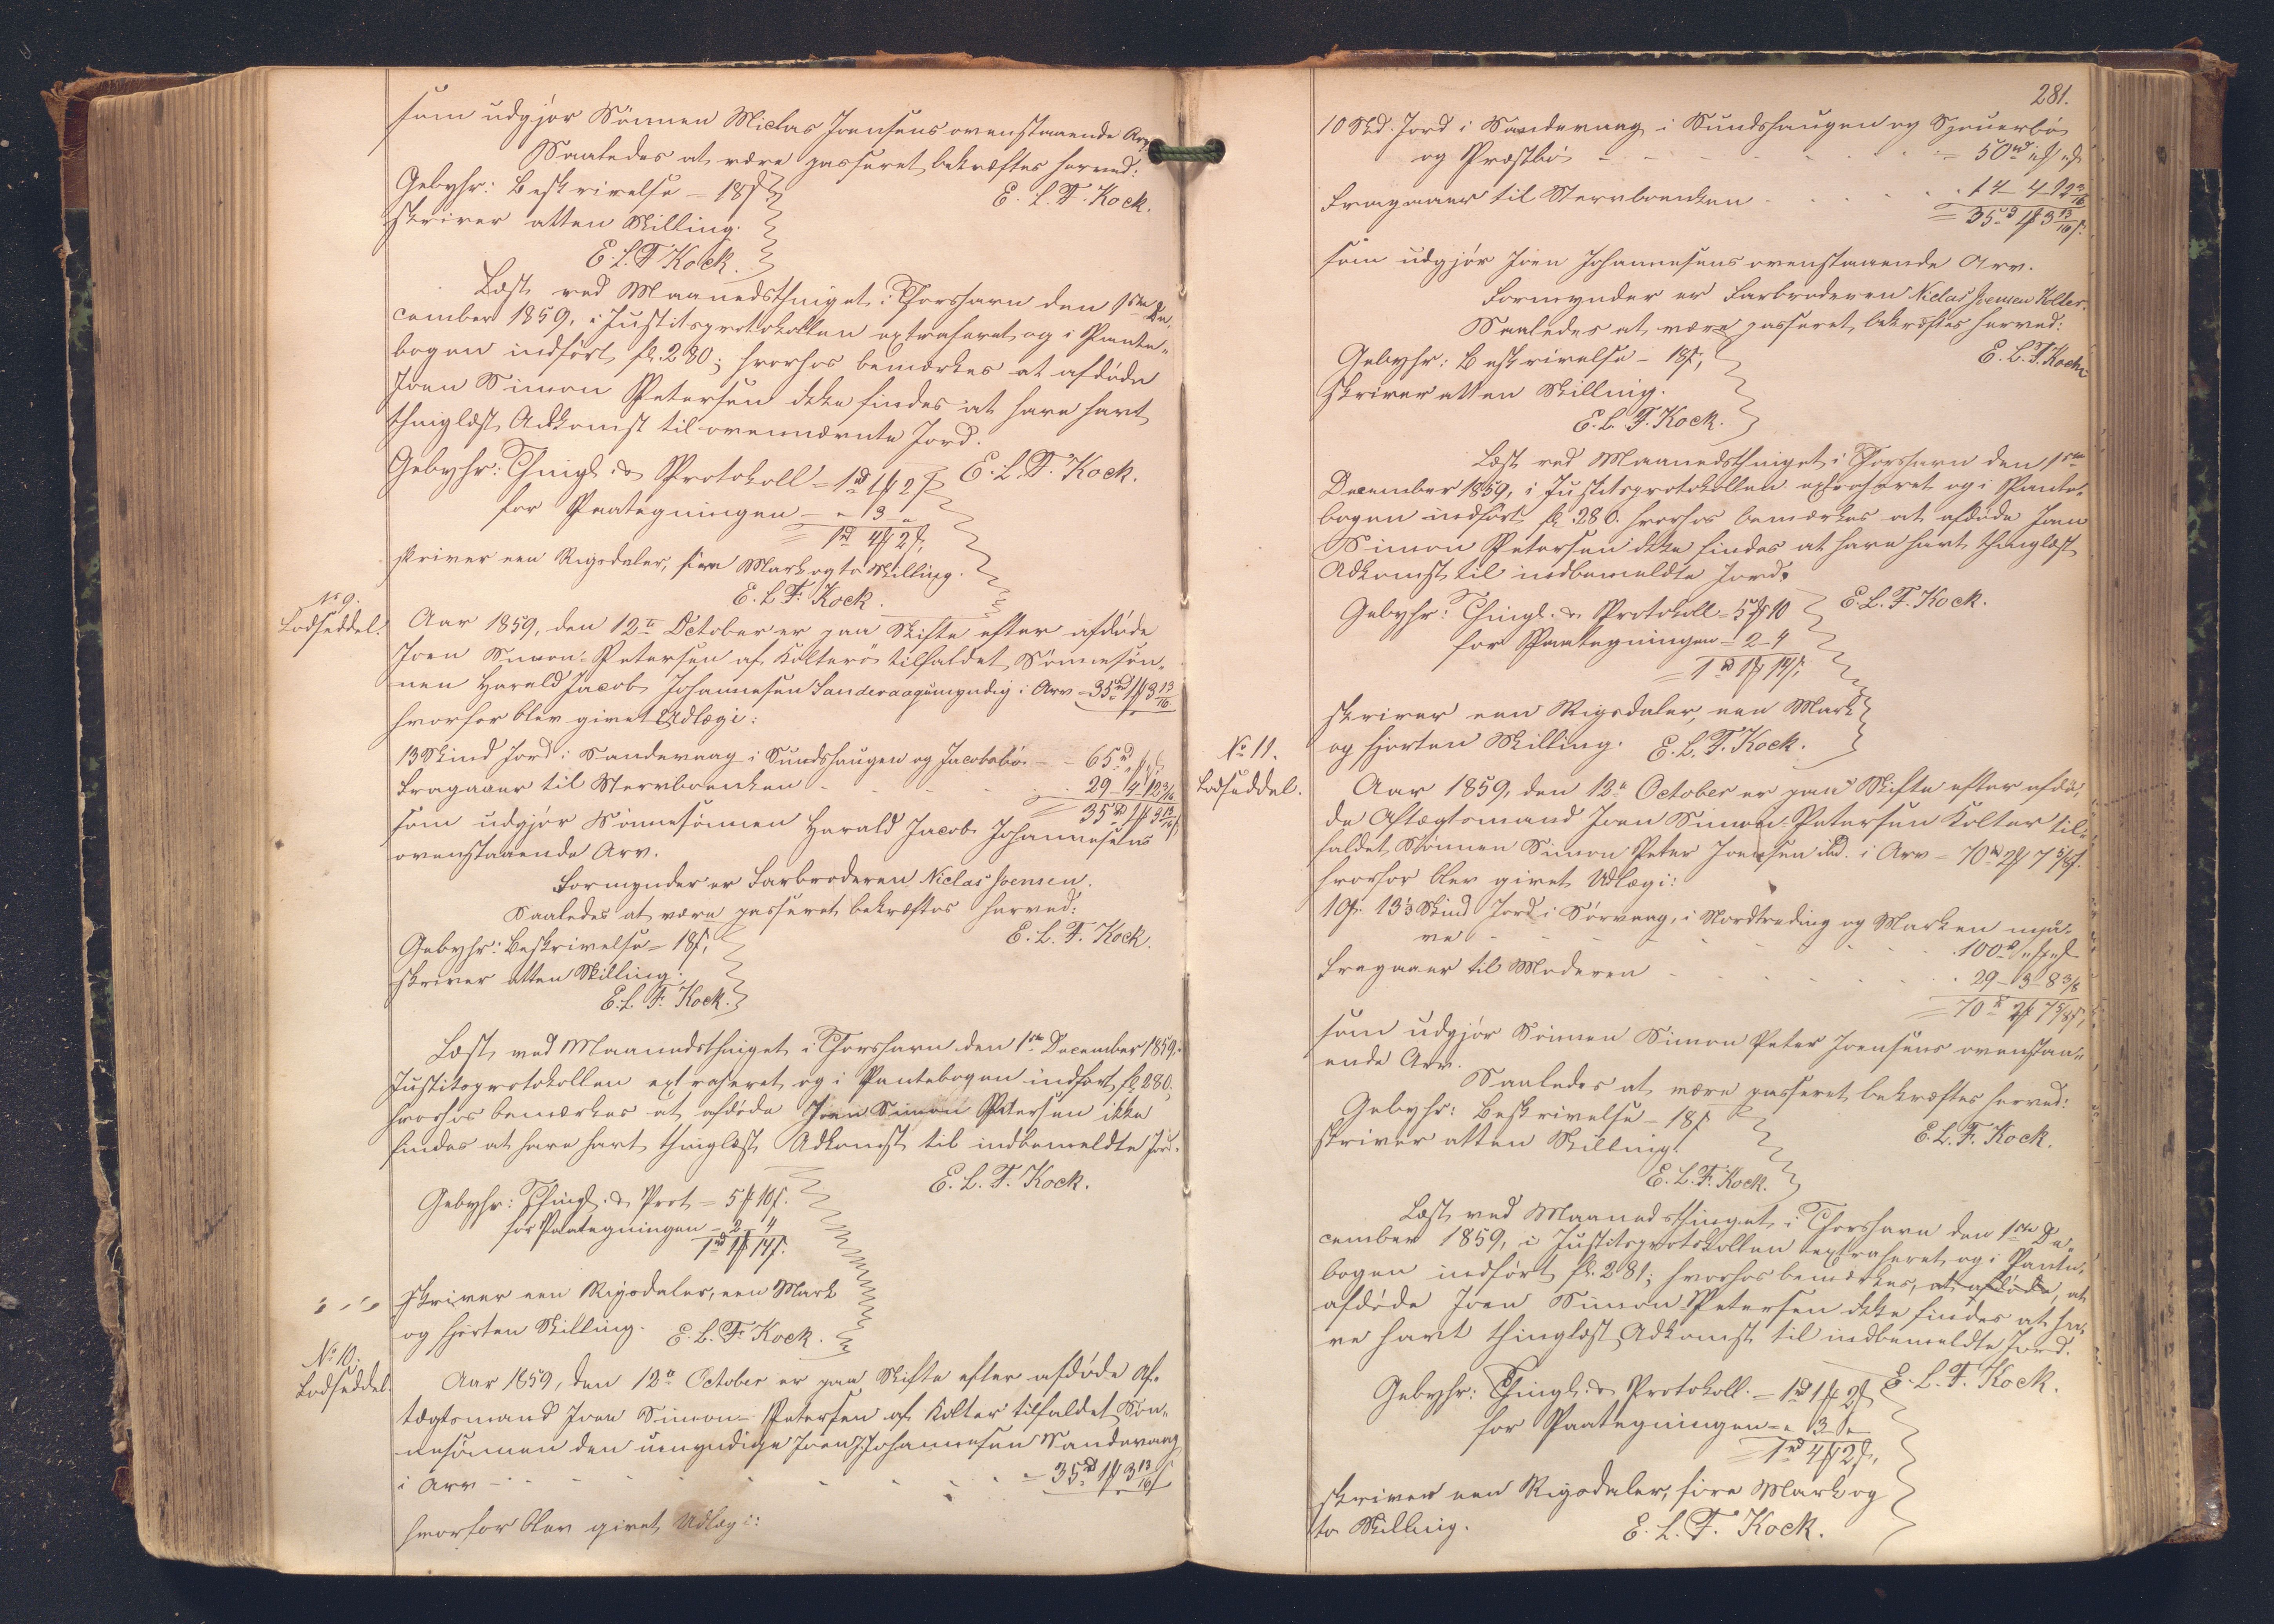 som udgjør Sönnen Niclas Joensens ovenstaaende Arv.
Saaledes at være passeret bekræftes herved:
Gebyhr: Beskrivelse = 18 s
E. L. F. Kock.
skriver atten Skilling.
E. L. F. Kock.
Læst ved Maanedsthinget i Thorshavn den 1ste De-
cember 1859, i Justitsprotokollen extraheret og i Pante-
bogen indfört fl. 280; hvorhos bemærkes at afdøde
Joen Simon Petersen ikke findes at have havt
thinglæst Adkomst til ovennævnte Jord.
E. L. F. Kock.
Gebyhr: Thingl. & Protokoll = 1rd 1 mk 2 s
for Paategningen - " 3 "
= 1rd 4 mk 2 s,
skriver een Rigsdaler, fire Mark og to Skilling.
E. L. F. Kock.
No 9.
Lodseddel.
Aar 1859, den 12te October er paa Skifte efter afdøde
Joen Simon Petersen af Kolterö tilfaldet Sönnesön-
nen Harald Jacob Johannesen Sandevaag umyndig i Arv = 35rd 1 mk 3 13/16
hvorfor blev givet Udlæg i:
13 Skind Jord i Sandevaag i Sundshaugen og Jacobsbö - - 65rd " "
Fragaaer til Stervboenken - - 29 - 4 - 12 3/16
= 35rd 1 mk 3 13/16 s
som udgjør Sönnesönnen Harald Jacob Johannesens
ovenstaaende Arv.
Formynder er Farbroderen Niclas Joensen.
Saaledes at være passeret bekræftes herved:
Gebyhr: Beskrivelse = 18 s,
E. L. F. Kock.
skriver atten Skilling.
E. L. F. Kock.
Læst ved Maanedsthinget i Thorshavn den 1ste December 1859.
Justitsprotokollen extraheret og i Pantebogen indfört fl. 280,
hvorhos bemærkes at afdøde Joen Simon Petersen ikke
findes at have havt thinglæst Adkomst til indbemeldte Jord.
E. L. F. Kock.
Gebyhr: Thingl. & Prot = 5 mk 10 s.
for Paategningen - 2 - 4
1rd 1 mk 14 s.
skriver een Rigsdaler, een Mark
og fjorten Skilling. E. L. F. Kock.
No 10.
Lodseddel.
Aar 1859, den 12te October er paa Skifte efter afdøde Af-
tægtsmand Joen Simon Petersen af Kolter tilfaldet Sön-
nesönnen den umyndige Joen J. Johannesen Sandevaag
i Arv - - - = 35rd 1 mk 3 13/16 s
hvorfor blev givet Udlæg i:
281.
10 Skd. Jord i Sandevaag i Sundshaugen og
og Præstbö - - - = 50rd " "
Fragaaer til Stervboenken - - 14 - 4 - 12 3/16
= 35rd 1 mk 3 13/16 s.
som udgjør Joen Johannesens ovenstaaende Arv.
Formynder er Farbroderen Niclas Joensen Kolter.
Saaledes at være passeret, bekræftes herved:
Gebyhr: Beskrivelse - 18 s,
E. L. F. Kock.
skriver atten Skilling.
E. L. F. Kock.
Læst ved Maanedsthinget i Thorshavn den 1ste
December 1859, i Justitsprotokollen extraheret og i Pante-
bogen indfört fl. 280. hvorhos bemærkes at afdøde Joen
Simon Petersen ikke findes at have havt thinglæst
Adkomst til indbemeldte Jord.
E. L. F. Kock.
Gebyhr: Thingl. & Protokoll = 5 mk 10
for Paategningen - 2 - 4
= 1rd 1 mk 14 s.
skriver een Rigsdaler, een Mark
og fjorten Skilling. E. L. F. Kock.
No 11.
Lodseddel.
Aar 1859, den 12te October er paa Skifte efter afdø-
de Aftægtsmand Joen Simon Petersen Kolter til-
faldet Sönnen Simon Peter Joensen ibd. i Arv = 70rd 2 mk 7 5/8 s.
hvorfor blev givet Udlæg i:
1 G. 13 1/3 Skind Jord i Sörvaag, i Nordtreding og Marken
- - - 100rd " "
Fragaaer til Moderen - - - 29 - 3 - 8 3/8
= 70rd 2 mk 7 5/8 s,
som udgjør Sönnen Simon Peter Joensens ovenstaa-
ende Arv.
Saaledes at være passeret bekræftes herved:
Gebyhr: Beskrivelse - 18 s
E. L. F. Kock.
skriver atten Skilling.
E. L. F. Kock.
Læst ved Maanedsthinget i Thorshavn den 1ste De-
cember 1859, i Justitsprotokollen extraheret og i Pante-
bogen indfört fl. 281; hvorhos bemærkes, at afdøde, at
afdøde Joen Simon Petersen ikke findes at ha-
ve havt thinglæst Adkomst til indbemeldte Jord.
E. L. F. Kock.
Gebyhr: Thingl. & Protokoll. = 1rd 1 mk 2 s
for Paategningen - " 3 "
= 1rd 4 mk 2 s,
skriver een Rigsdaler, fire Mark og
to Skilling.
E. L. F. Kock.